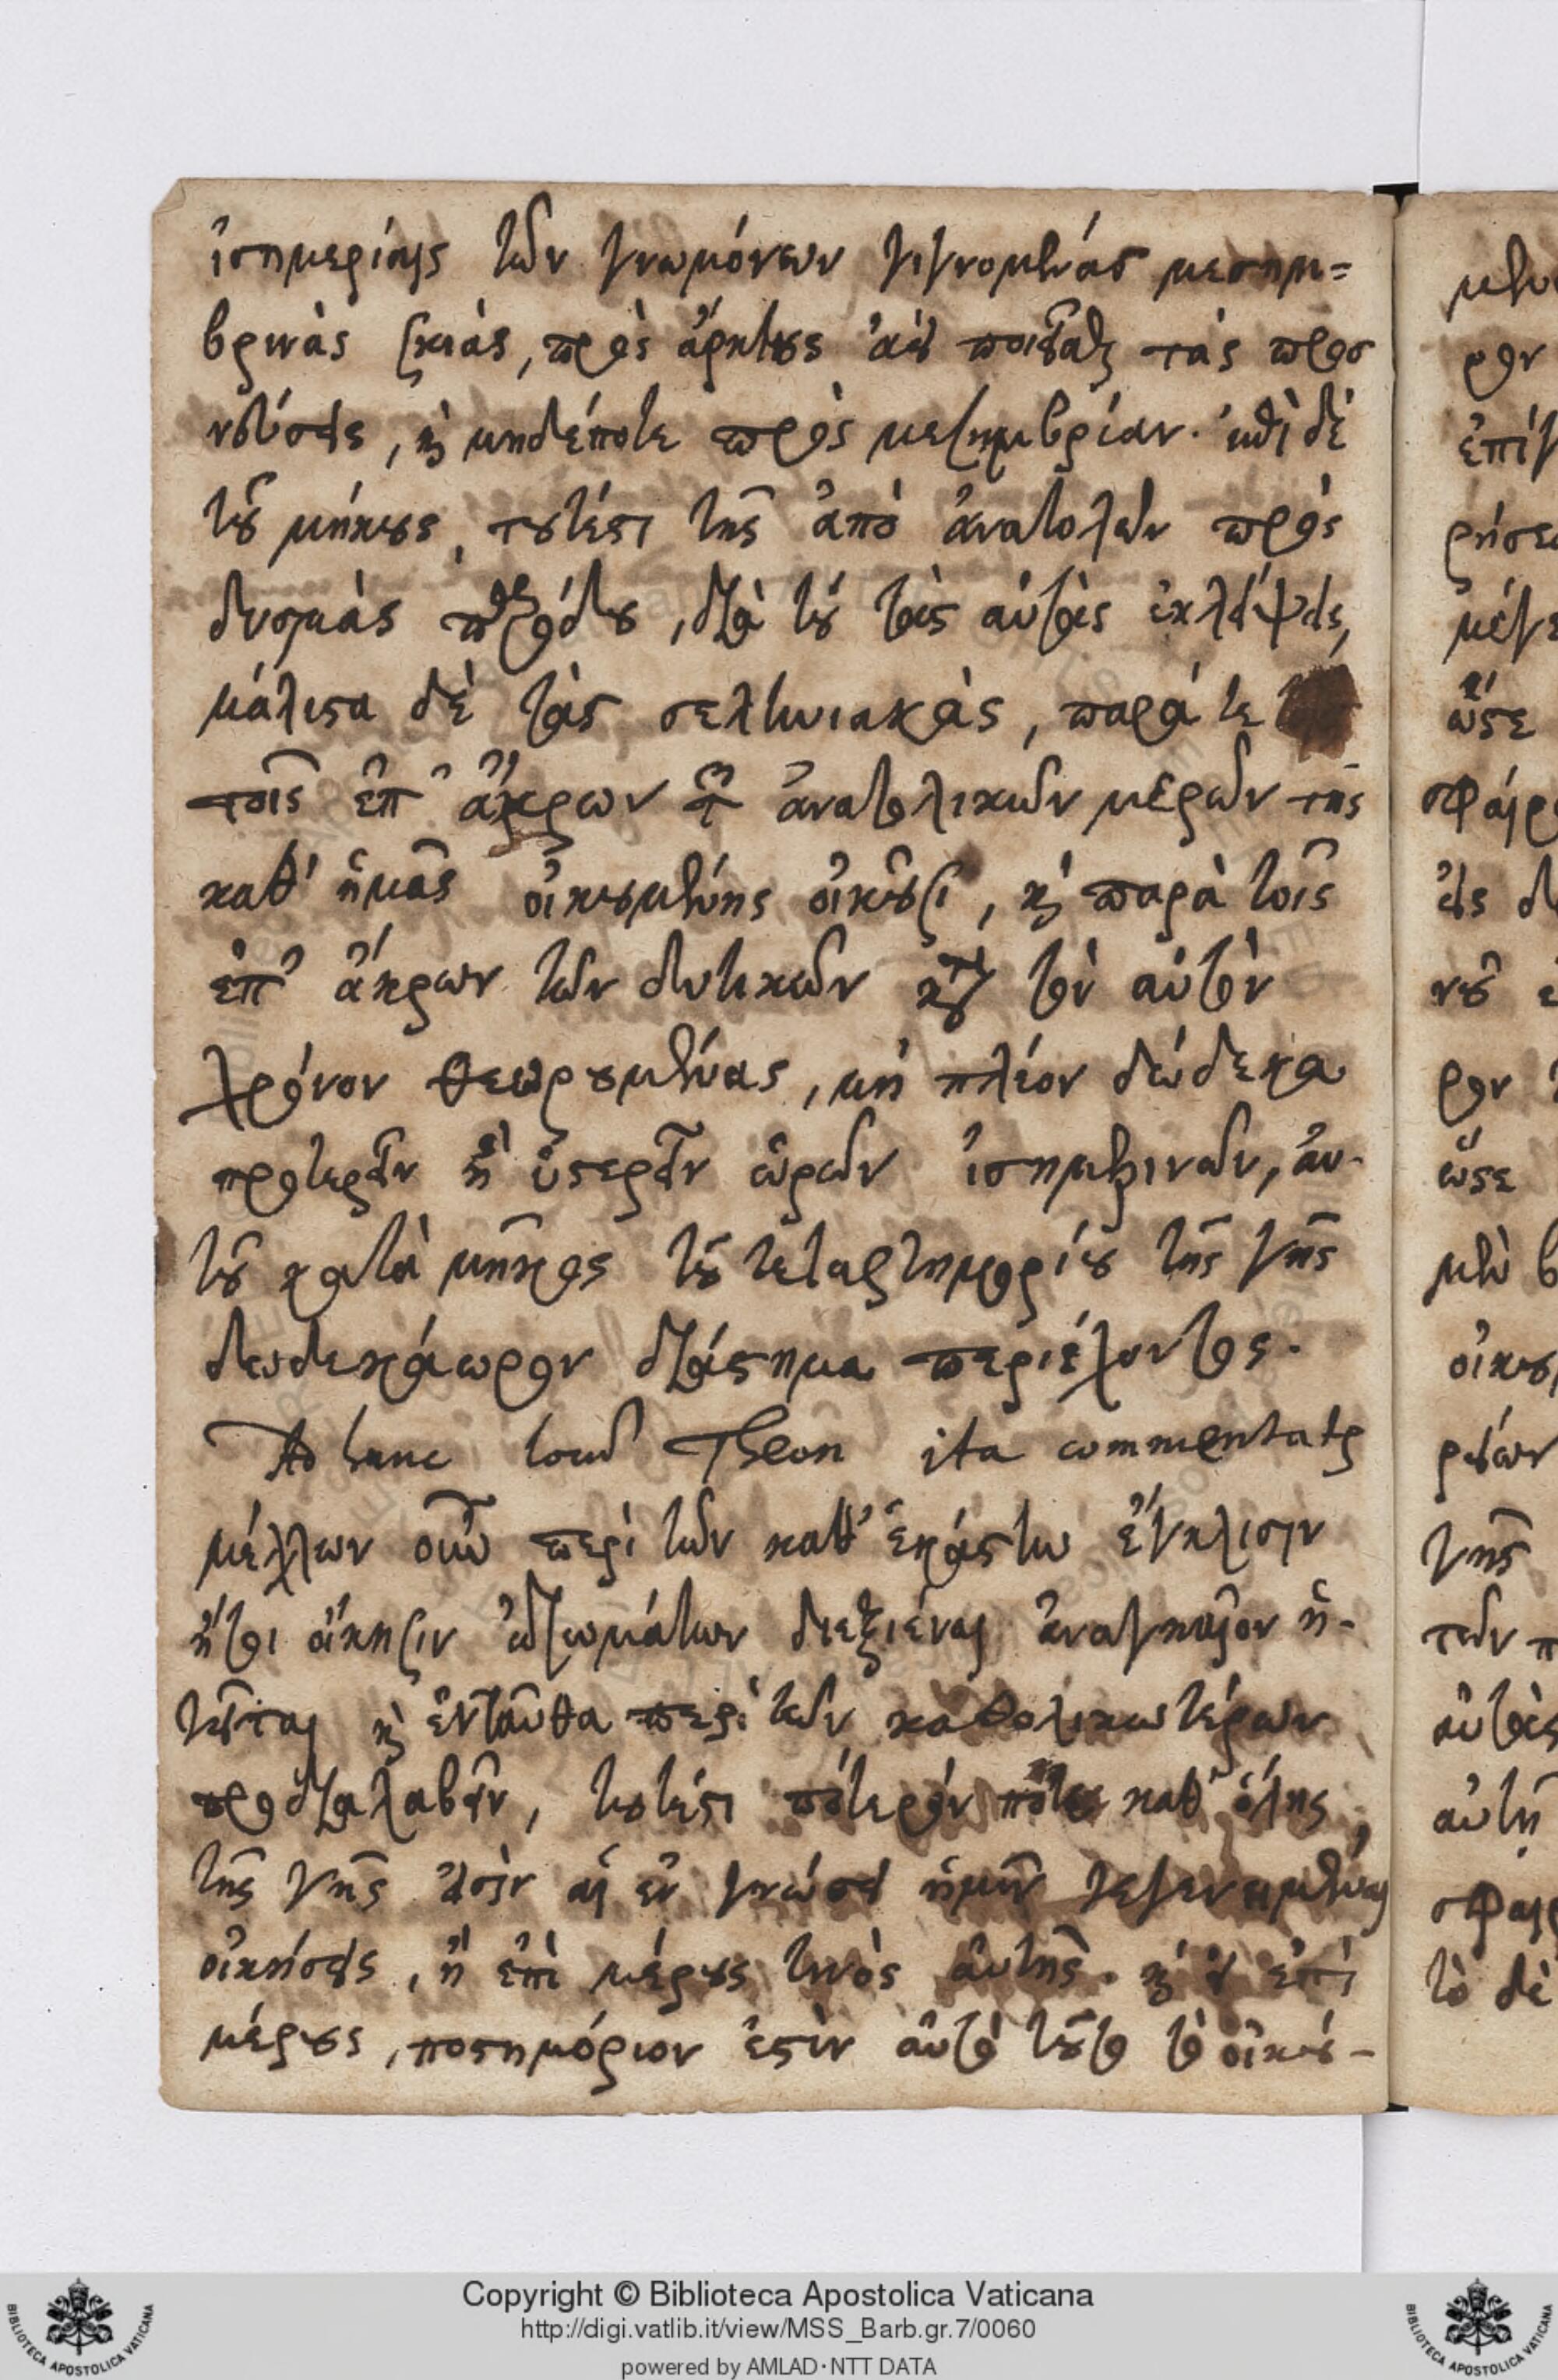 ἰσημερίαις τῶν γνωμόνων γιγνομένας μεσημ=
βρινὰς σκιάς, πρὸς ἄρκτους ἀεὶ ποιεῖσθαι τὰς προσ
νεύσεις, καὶ μηδέποτε πρὸς μεσημβρίαν. ἐπὶ δὲ
τοῦ μήκους, τουτέστι τῆς ἀπὸ ἀνατολῶν πρὸς
δυσμὰς παρόδου, διὰ τοῦ τὰς αὐτὰς ἐκλείψεις,
μάλιστα δὲ τὰς σεληνιακὰς, παρά τε
τοῖς ἐπ' ἄκρων τῶν ἀνατολικῶν μερῶν τῆς
καθ' ἡμᾶς οἰκουμένης οἰκοῦσι, καὶ παρὰ τοῖς
ἐπ' ἄκρων τῶν δυτικῶν κατὰ τὸν αὐτὸν
χρόνον θεωρουμένας, μὴ πλέον δώδεκα
προτερεῖν ἢ ὑστερεῖν ὡρῶν ἰσημερινῶν, αὐ-
τοῦ κατὰ μῆκος τοῦ τεταρτημορίου τῆς γῆς
δωδεκάωρον διάστημα περιέχοντος.
Ad hunc locum Theon ita commentatur
μέλλων οὖν περὶ τῶν καθ' ἑκάστην ἔγκλισιν
ἤτοι οἴκησιν ἰδιωμάτων διεξιέναι ἀναγκαῖον ἡ-
γεῖται καὶ ἐνταῦθα περὶ τῶν καθολικωτέρων
προδιαλαβεῖν, τουτέστι πότερόν ποτε καθ' ὅλης
τῆς γῆς εἰσὶν αἱ ἐν γνώσει ἡμῖν γεγενημέναι
οἰκήσεις, ἢ ἐπὶ μέρους τινὸς αὐτῆς. καὶ εἰ ἐπὶ
μέρους, ποστημόριον ἐστὶν αὐτὸ τοῦτο τὸ οἰκού-
Copyright © Biblioteca Apostolica Vaticana
http://digi.vatlib.it/view/MSS_Barb.gr.7/0060
powered by AMLAD·NTT DATA
BIBLIOTECA APOSTOLICA VATICANA
BIBLIOTECA APOSTOLICA VATICANA